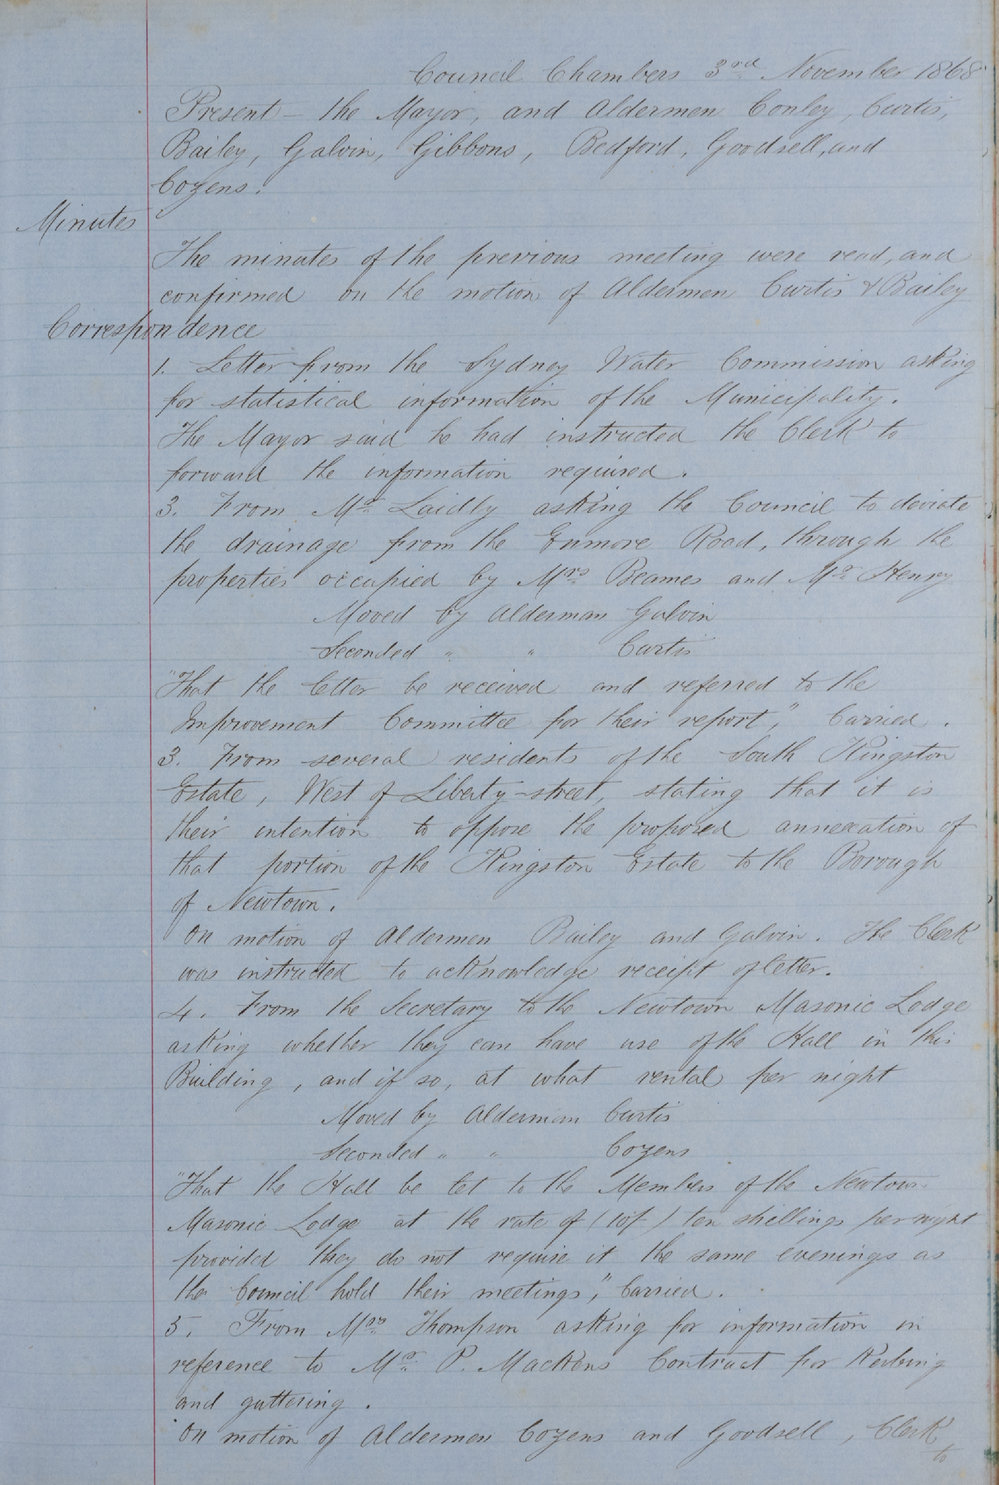 Council Chambers 3rd November 1868
Present – the Mayor, and Aldermen Conley, Curtis,
Bailey, Galvin, Gibbons, Bedford, Goodsell, and
Cozens.
Minutes
The minutes of the previous meeting were read, and
confirmed on the motion of Aldermen Curtis & Bailey
Correspondence
1. Letter from the Sydney Water Commission asking
for statistical information of the Municipality.
The Mayor said he had instructed the Clerk to
forward the information required.
3. From Mr Laidly asking the Council to deviate
the drainage from the Enmore Road, through the
properties occupied by Mrs Beames and Mr Henry
Moved by Alderman Galvin
Seconded " " Curtis
"That the letter be received and referred to the
Improvement Committee for their report", Carried.
3. From several residents of the South Kingston
Estate, West of Liberty-street, stating that it is
their intention to oppose the proposed annexation of
that portion of the Kingston Estate to the Borough
of Newtown.
On motion of Aldermen Bailey and Galvin. The Clerk
was instructed to acknowledge receipt of letter.
4. From the Secretary to the Newtown Masonic Lodge
asking whether they can have use of the Hall in this
Building, and if so, at what rental per night
Moved by Alderman Curtis
Seconded " " Cozens
"That the Hall be let to the Members of the Newtown
Masonic Lodge at the rate of (10/-) ten shillings per night
provided they do not require it the same evenings as
the Council hold their meetings", Carried.
5. From Mrs Thompson asking for information in
reference to Mr P. Mackens Contract for Kerbing
and guttering.
On motion of Aldermen Cozens and Goodsell, Clerk
to